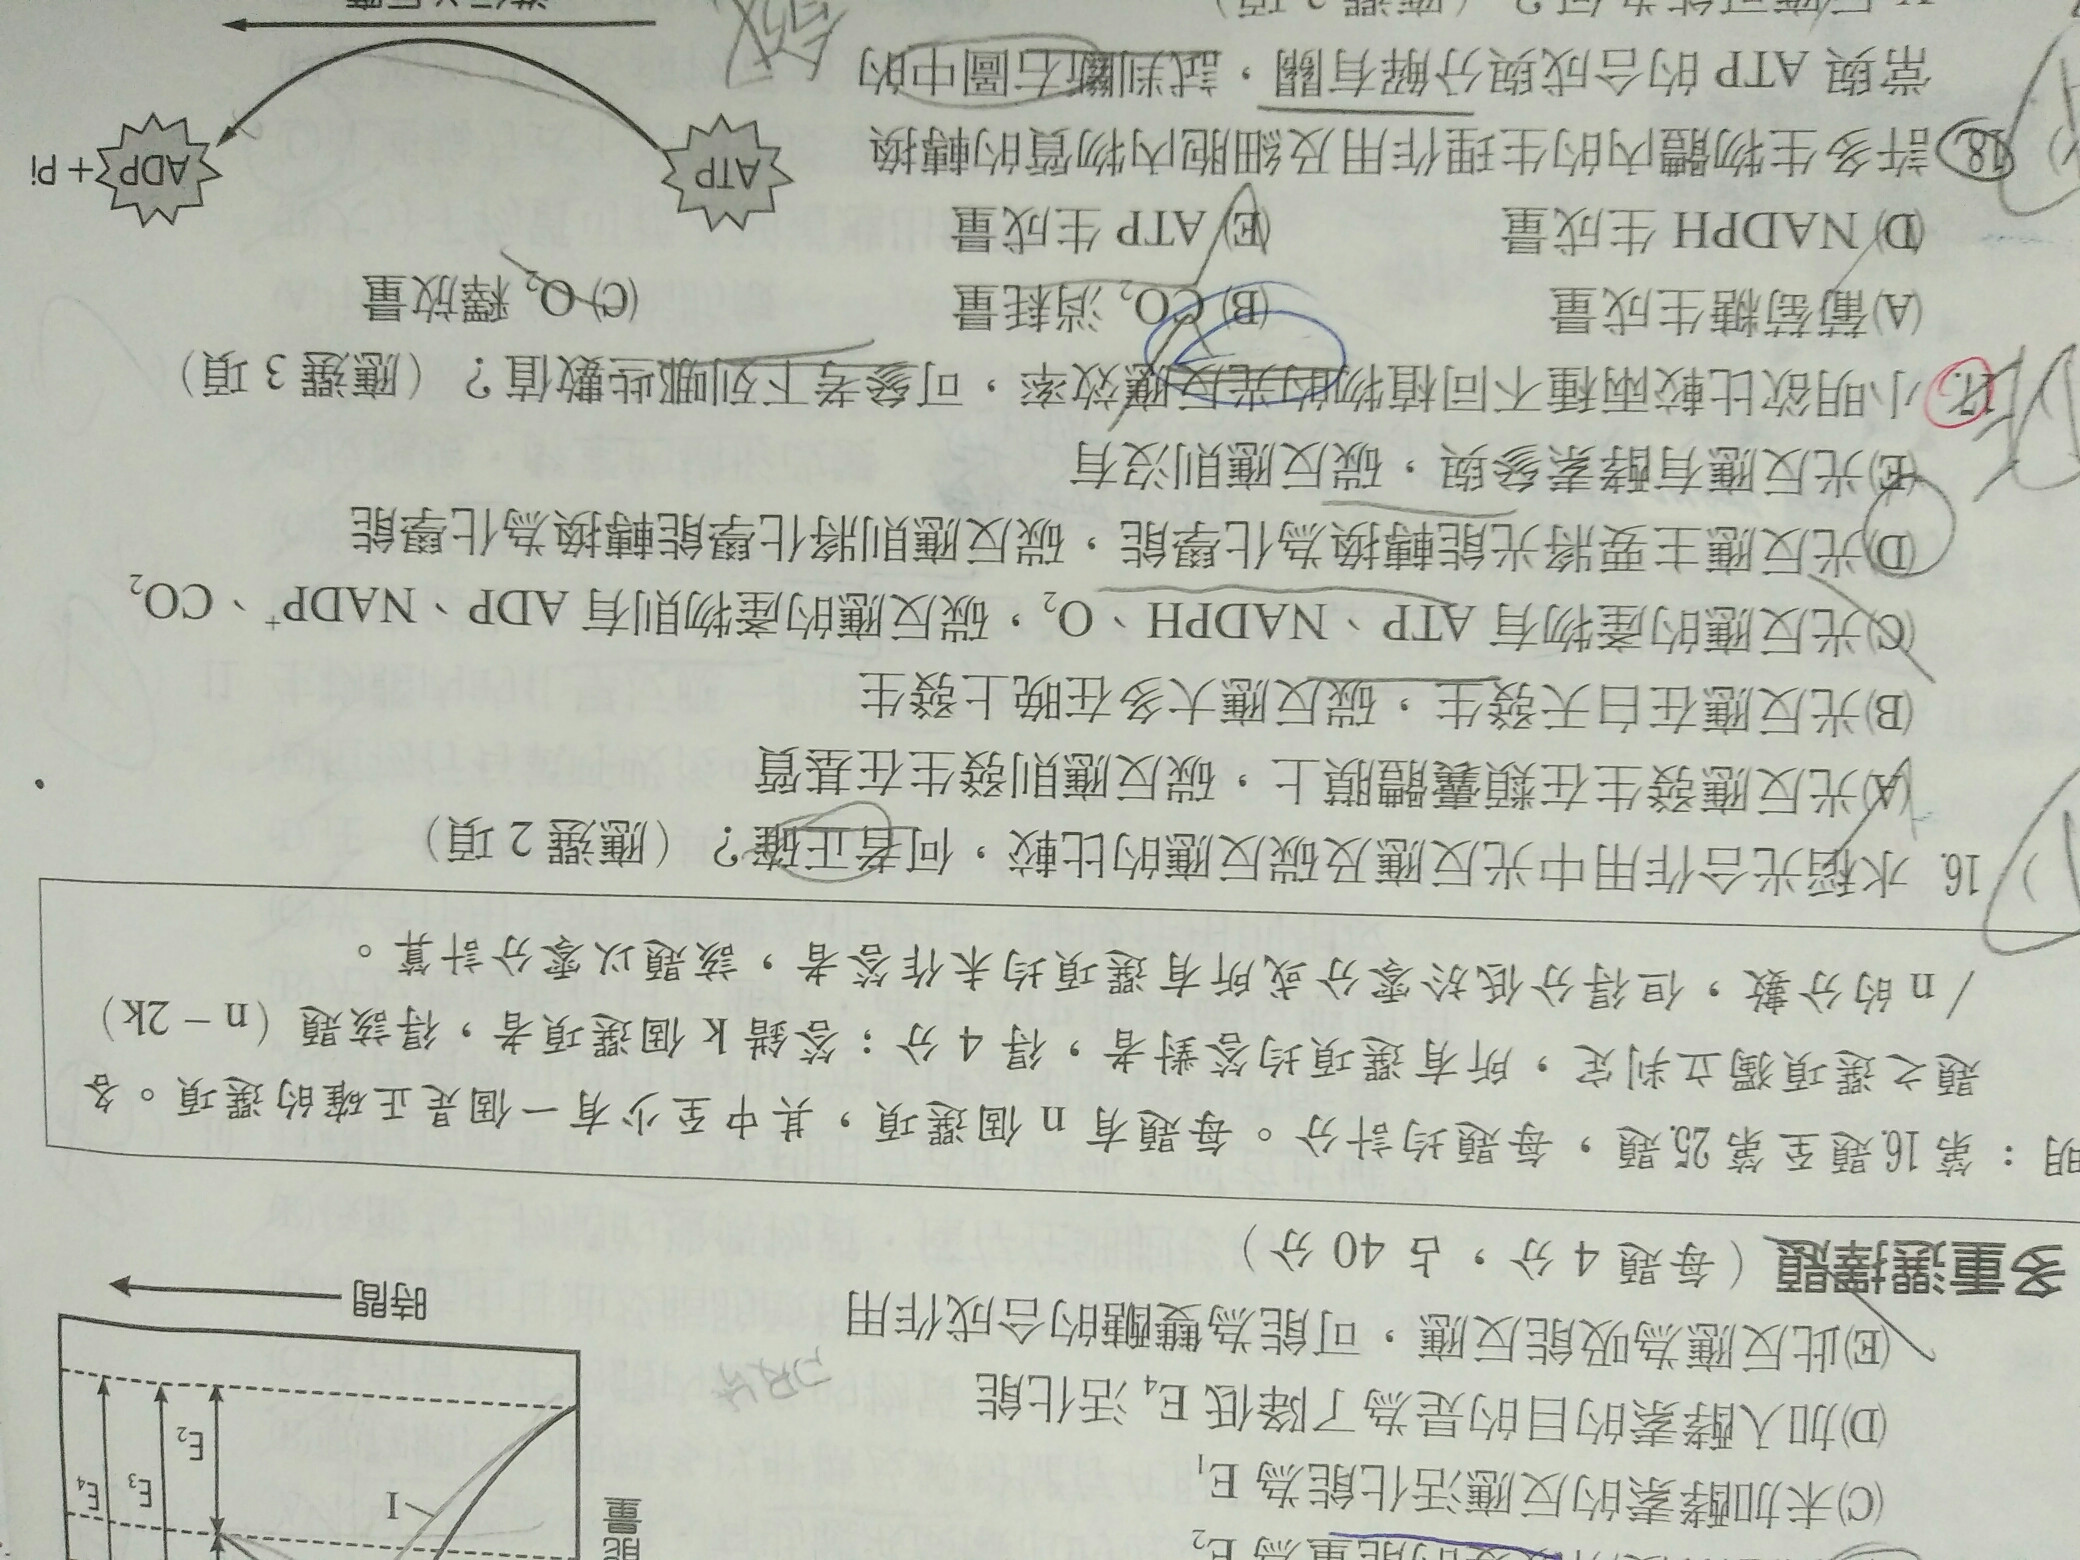 量為 E₂
(C)未加酵素的反應活化能為 E₁
(D)加入酵素的目的是為了降低 E₄ 活化能
(E)此反應為吸能反應，可能為雙醣的合成作用
能量
I
E₂
E₃
E₄
時間
多重選擇題（每題 4 分，占 40 分）
明：第 16.題至第 25.題，每題均計分。每題有 n 個選項，其中至少有一個是正確的選項。各
題之選項獨立判定，所有選項均答對者，得 4 分；答錯 k 個選項者，得該題（n－2k）
/ n 的分數，但得分低於零分或所有選項均未作答者，該題以零分計算。
) 16. 水稻光合作用中光反應及碳反應的比較，何者正確？（應選 2 項）
(A)光反應發生在類囊體膜上，碳反應則發生在基質
(B)光反應在白天發生，碳反應大多在晚上發生
(C)光反應的產物有 ATP、NADPH、O₂，碳反應的產物則有 ADP、NADP⁺、CO₂
(D)光反應主要將光能轉換為化學能，碳反應則將化學能轉換為化學能
(E)光反應有酵素參與，碳反應則沒有
17. 小明欲比較兩種不同植物的光反應效率，可參考下列哪些數值？（應選 3 項）
(A)葡萄糖生成量 (B) CO₂ 消耗量 (C) O₂ 釋放量
(D) NADPH 生成量 (E) ATP 生成量
) 18. 許多生物體內的生理作用及細胞內物質的轉換
常與 ATP 的合成與分解有關，試判斷右圖中的
ATP
ADP + Pi